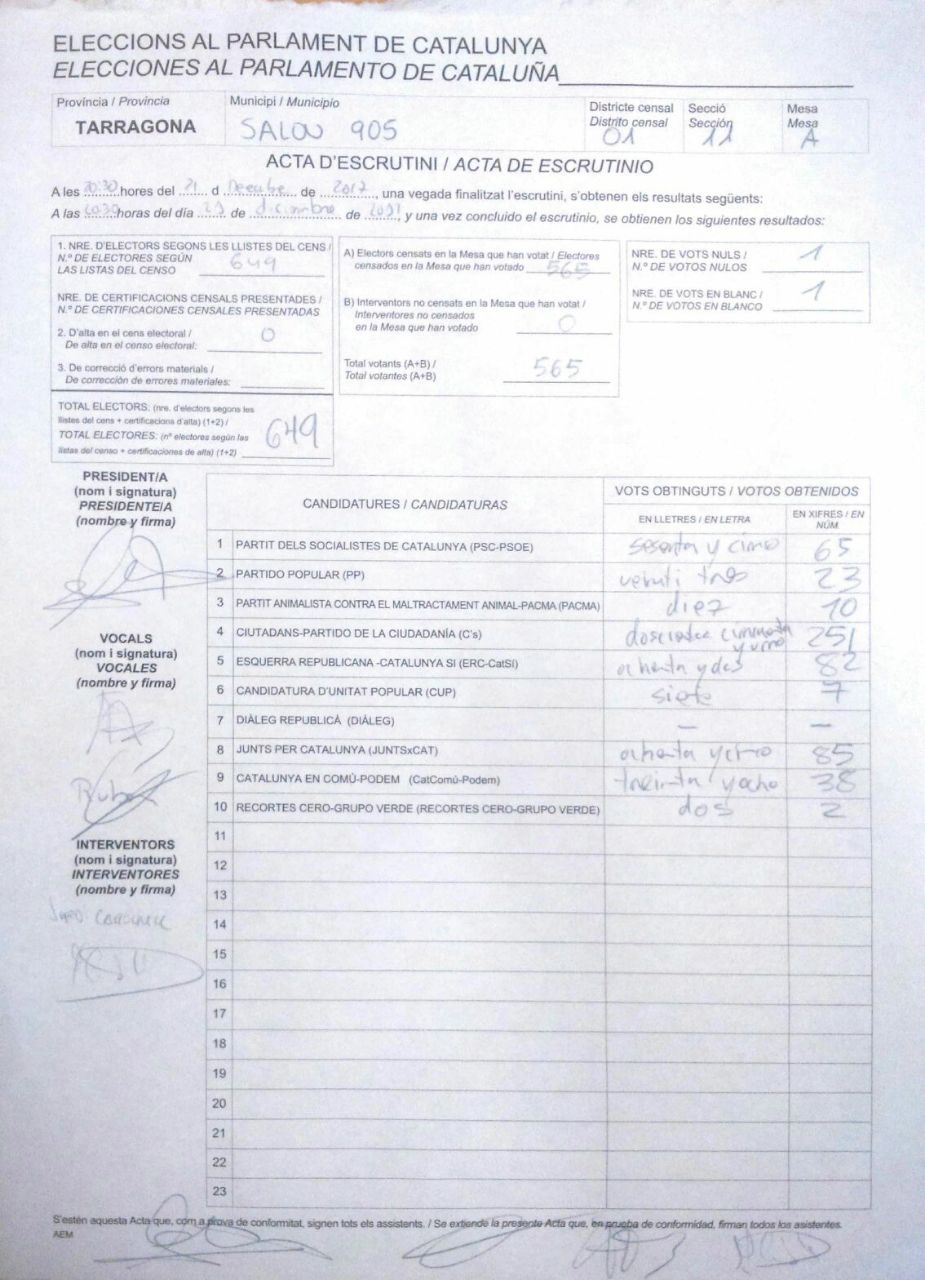 ELECCIONS AL PARLAMENT DE CATALUNYA
ELECCIONES AL PARLAMENTO DE CATALUÑA
Província / Provincia
TARRAGONA
Municipi / Municipio
SALOU 905
Districte censal
Distrito censal
01
Secció
Sección
11
Mesa
Mesa
A
ACTA D'ESCRUTINI / ACTA DE ESCRUTINIO
A les 20:30 hores del 21 d de 2017, una vegada finalitzat l'escrutini, s'obtenen els resultats següents:
A las 20:30 horas del día de diciembre de, y una vez concluido el escrutinio, se obtienen los siguientes resultados:
1. NRE. D'ELECTORS SEGONS LES LLISTES DEL CENS /
N.º DE ELECTORES SEGÚN
LAS LISTAS DEL CENSO 649
NRE. DE CERTIFICACIONS CENSALS PRESENTADES /
N.º DE CERTIFICACIONES CENSALES PRESENTADAS
2. D'alta en el cens electoral /
De alta en el censo electoral: 0
3. De correcció d'errors materials /
De corrección de errores materiales:
TOTAL ELECTORS: (nre. d'electors segons les
llistes del cens + certificacions d'alta) (1+2) /
TOTAL ELECTORES: (nº electores según las
listas del censo + certificaciones de alta) (1+2) 649
A) Electors censats en la Mesa que han votat / Electores
censados en la Mesa que han votado 565
B) Interventors no censats en la Mesa que han votat /
Interventores no censados
en la Mesa que han votado 0
Total votants (A+B) /
Total votantes (A+B) 565
NRE. DE VOTS NULS /
N.º DE VOTOS NULOS 1
NRE. DE VOTS EN BLANC /
N.º DE VOTOS EN BLANCO 1
PRESIDENT/A
(nom i signatura)
PRESIDENTE/A
(nombre y firma)
VOCALS
(nom i signatura)
VOCALES
(nombre y firma)
INTERVENTORS
(nom i signatura)
INTERVENTORES
(nombre y firma)
CANDIDATURES / CANDIDATURAS
VOTS OBTINGUTS / VOTOS OBTENIDOS
EN LLETRES / EN LETRA
EN XIFRES / EN
NÚM
1 PARTIT DELS SOCIALISTES DE CATALUNYA (PSC-PSOE) sesenta y cinco 65
2 PARTIDO POPULAR (PP) veinti tres 23
3 PARTIT ANIMALISTA CONTRA EL MALTRACTAMENT ANIMAL-PACMA (PACMA) diez 10
4 CIUTADANS-PARTIDO DE LA CIUDADANÍA (C's) doscientos cincuenta y uno 251
5 ESQUERRA REPUBLICANA -CATALUNYA SI (ERC-CatSI) ochenta y dos 82
6 CANDIDATURA D'UNITAT POPULAR (CUP) siete 7
7 DIÀLEG REPUBLICÀ (DIÀLEG) — —
8 JUNTS PER CATALUNYA (JUNTSxCAT) ochenta y cinco 85
9 CATALUNYA EN COMÚ-PODEM (CatComú-Podem) treinta y ocho 38
10 RECORTES CERO-GRUPO VERDE (RECORTES CERO-GRUPO VERDE) dos 2
11
12
13
14
15
16
17
18
19
20
21
22
23
S'estén aquesta Acta que, com a prova de conformitat, signen tots els assistents. / Se extiende la presente Acta que, en prueba de conformidad, firman todos los asistentes.
AEM